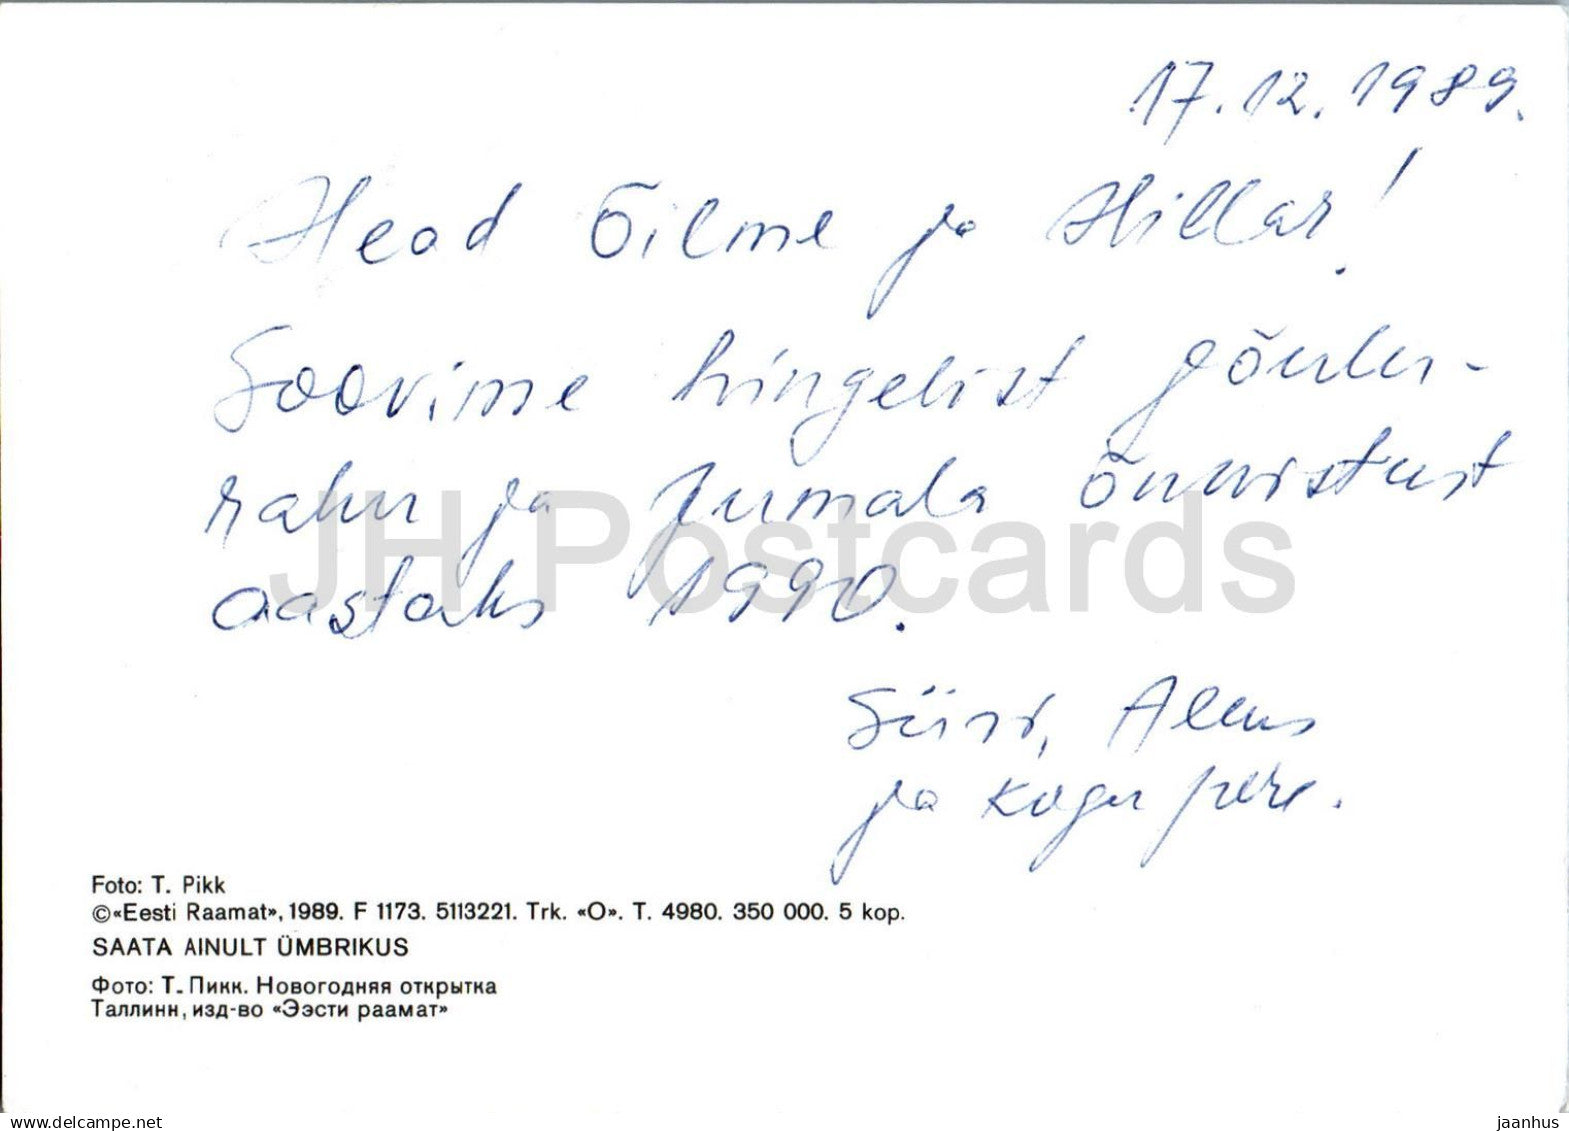 17.12.1989.
Head Õilme ja Hillar!
Soovime hingelist jõulu-
rahu ja Jumala õnnistust
aastaks 1990.
Siiri,
ja kogu pere.
JH Postcards
Foto: T. Pikk
©«Eesti Raamat», 1989. F 1173. 5113221. Trk. «O». T. 4980. 350 000. 5 kop.
SAATA AINULT ÜMBRIKUS
Фото: Т. Пикк. Новогодняя открытка
Таллинн, изд-во «Ээсти раамат»
www.delcampe.net
jaanhus